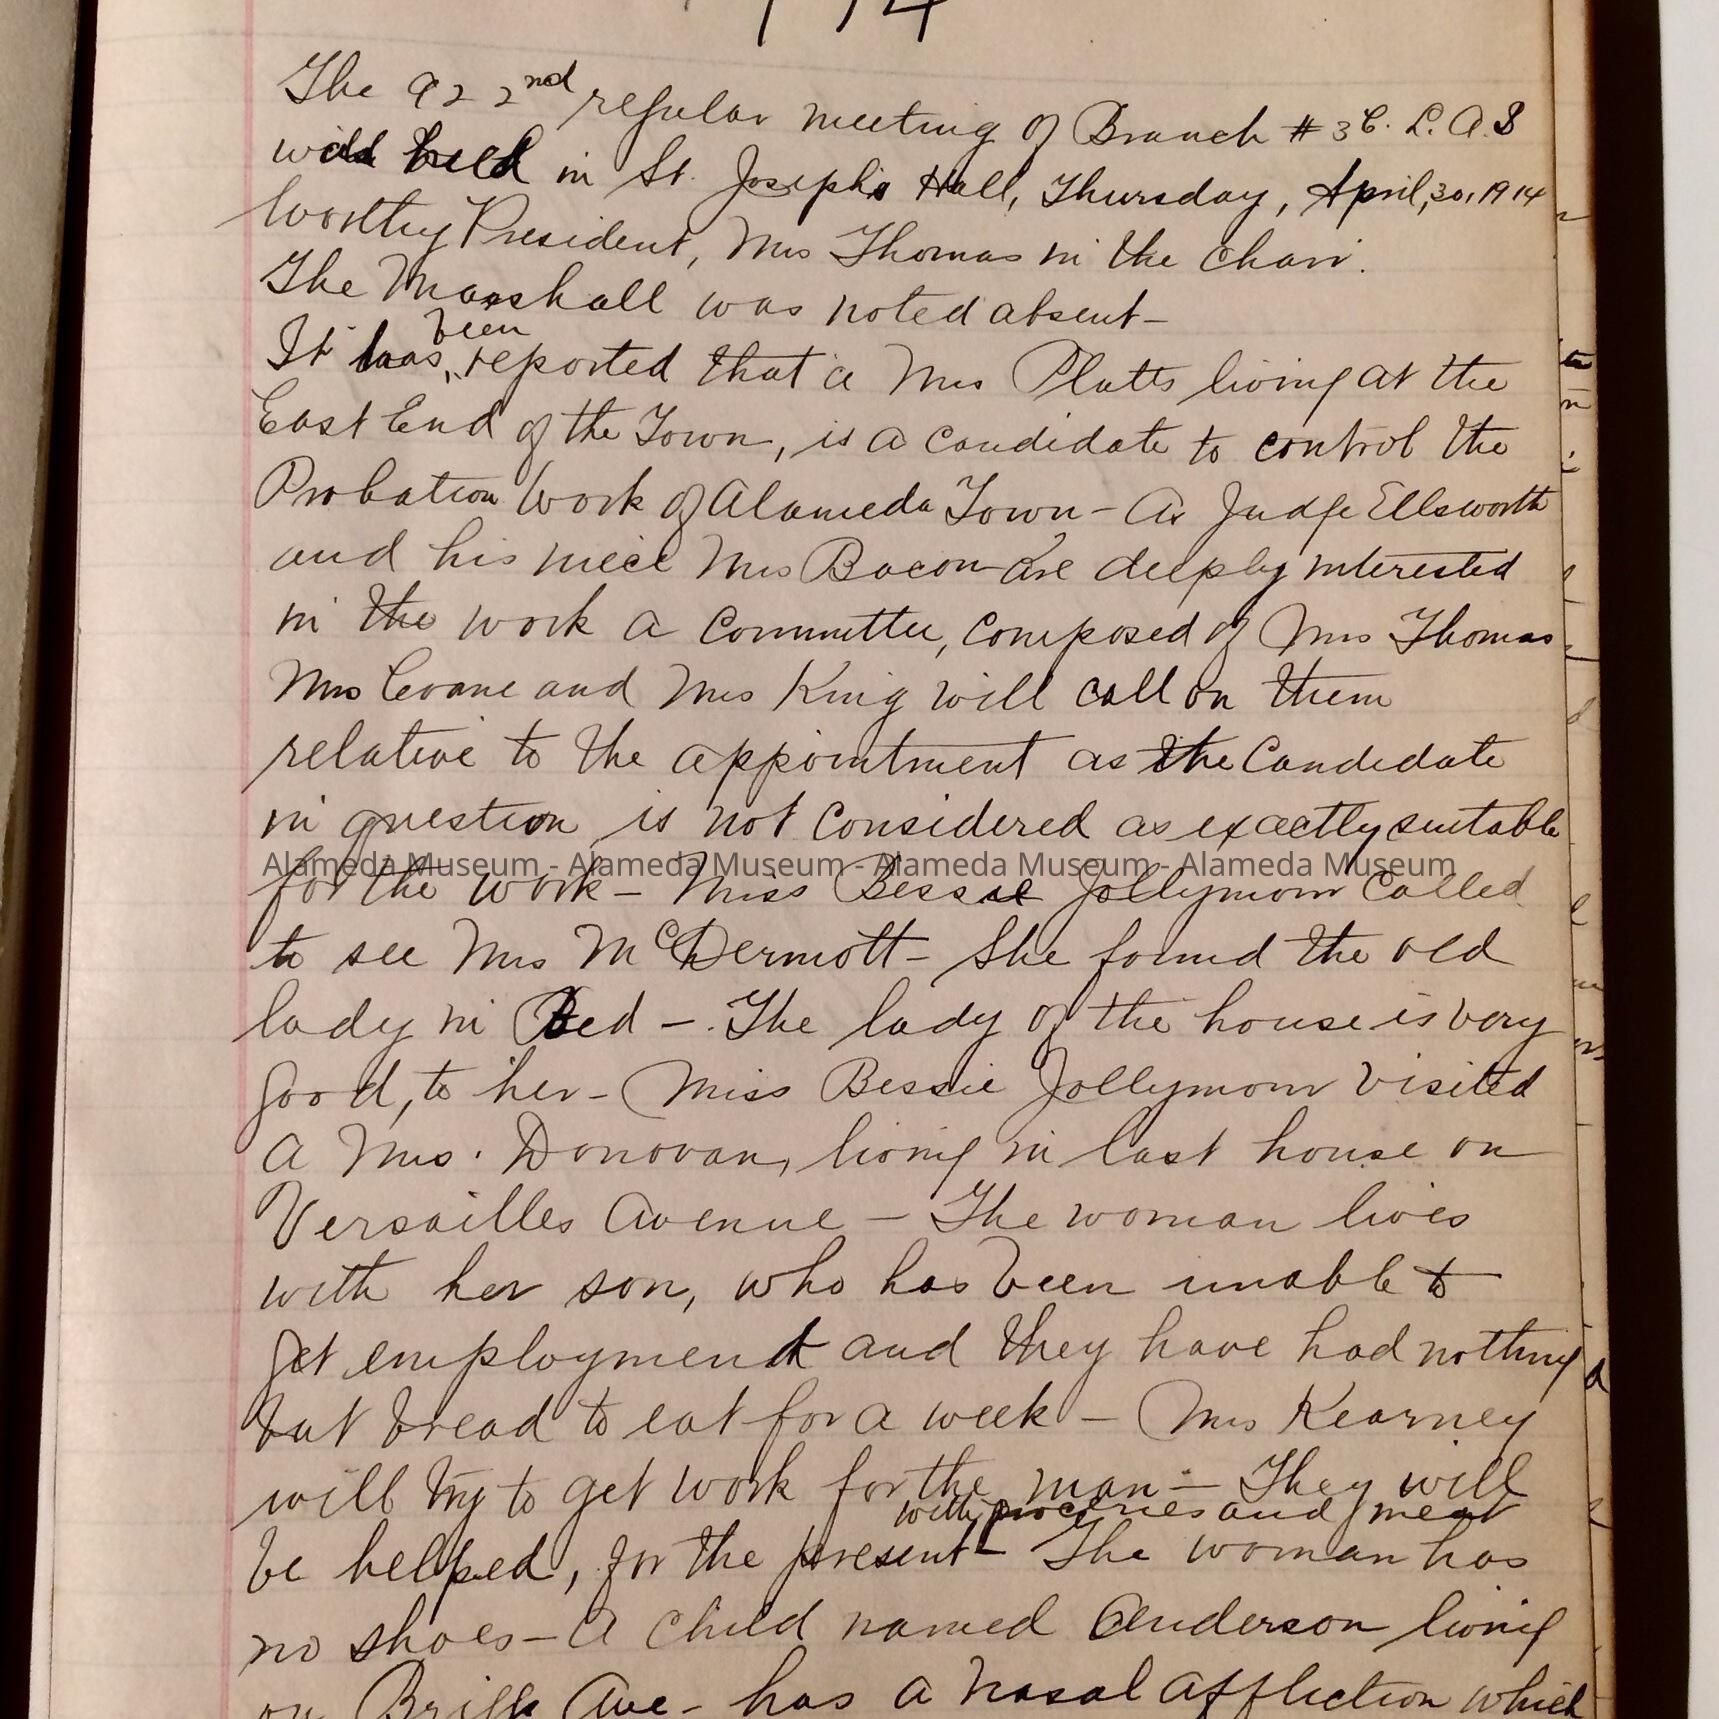 The 922nd regular meeting of Branch #3 C. L. A. S
was held in St. Joseph's Hall, Thursday, April, 30, 1914
Worthy President, Mrs Thomas in the chair.
The Maashall was noted absent-
It has, been reported that a Mrs Platts living at the
East End of the Town, is a candidate to control the
Probation Work of Alameda Town - As Judge Ellsworth
and his niece Mrs Bacon are deeply interested
in the work a Committee, composed of Mrs Thomas
Mrs and Mrs King will call on them
relative to the appointment as the Candidate
in question is not Considered as exactly suitable
Alameda Museum - Alameda Museum - Alameda Museum - Alameda Museum
for the work - Miss Bessie Jollymour Called
to see Mrs McDermott - She found the old
lady in Bed -. The lady of the house is very
good, to her - Miss Bessie Jollymour visited
a Mrs. Donovan, living in last house on
Versailles Avenue - The woman lives
with her son, who has been unable to
get employment and they have had nothing
but bread to eat for a week - Mrs Kearney
will try to get work for the man - They will
be helped, with groceries and meat for the present - The woman has
no shoes - A child named Anderson living
on Ave - has a nasal affliction which